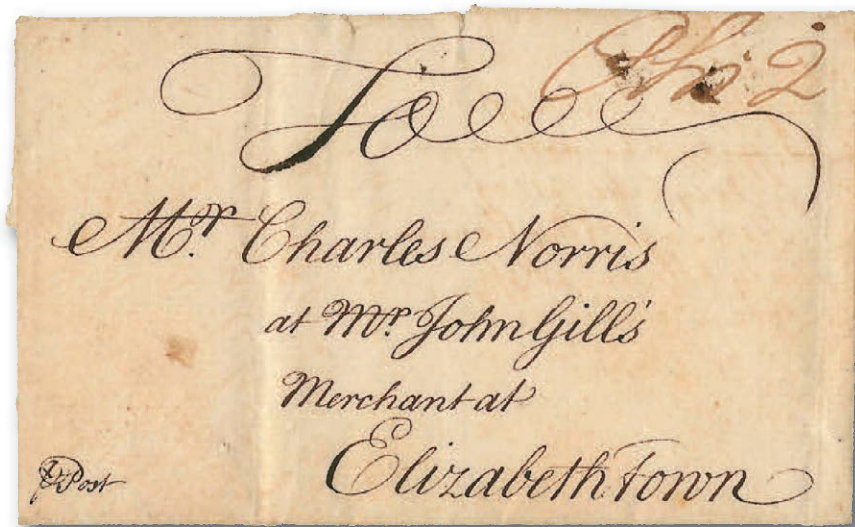 Phi 2
To
Mr. Charles Norris
at Mr. John Gill's
Merchant at
Elizabeth Town
⅌ Post